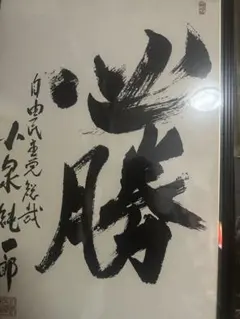 必勝
自由民主党総裁
小泉純一郎